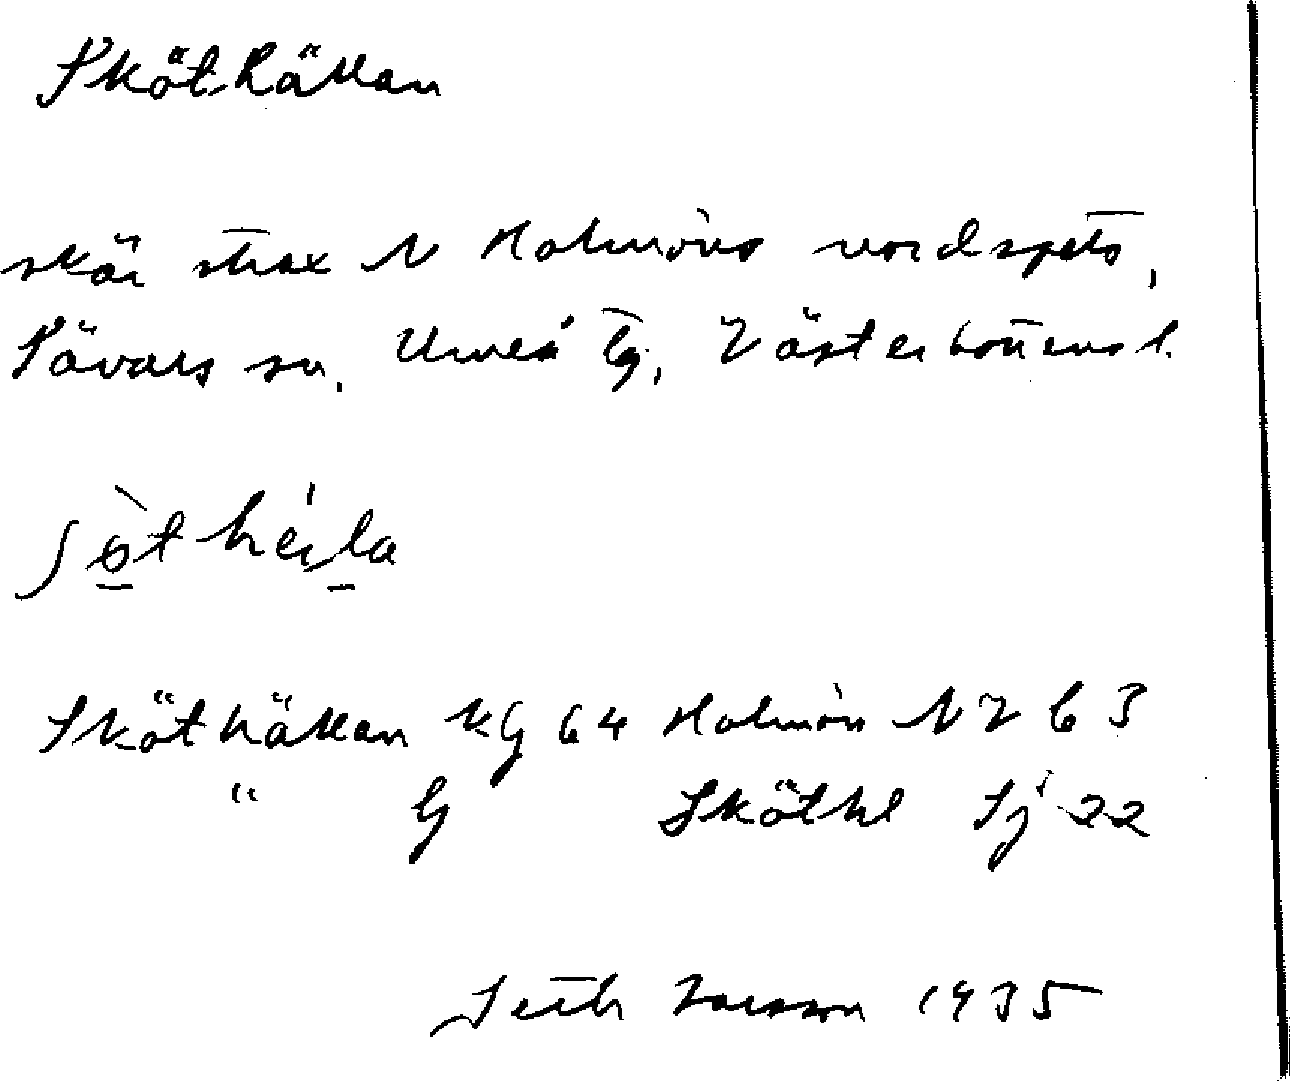 Sköthällan
skär strax N Holmöns nordspets,
Sävars sn. Umeå tg, Västerbottens l.
Sköthällan KG 64 Holmön NV 63
" G Sköthl Sj 22
Seth Larsson 1935